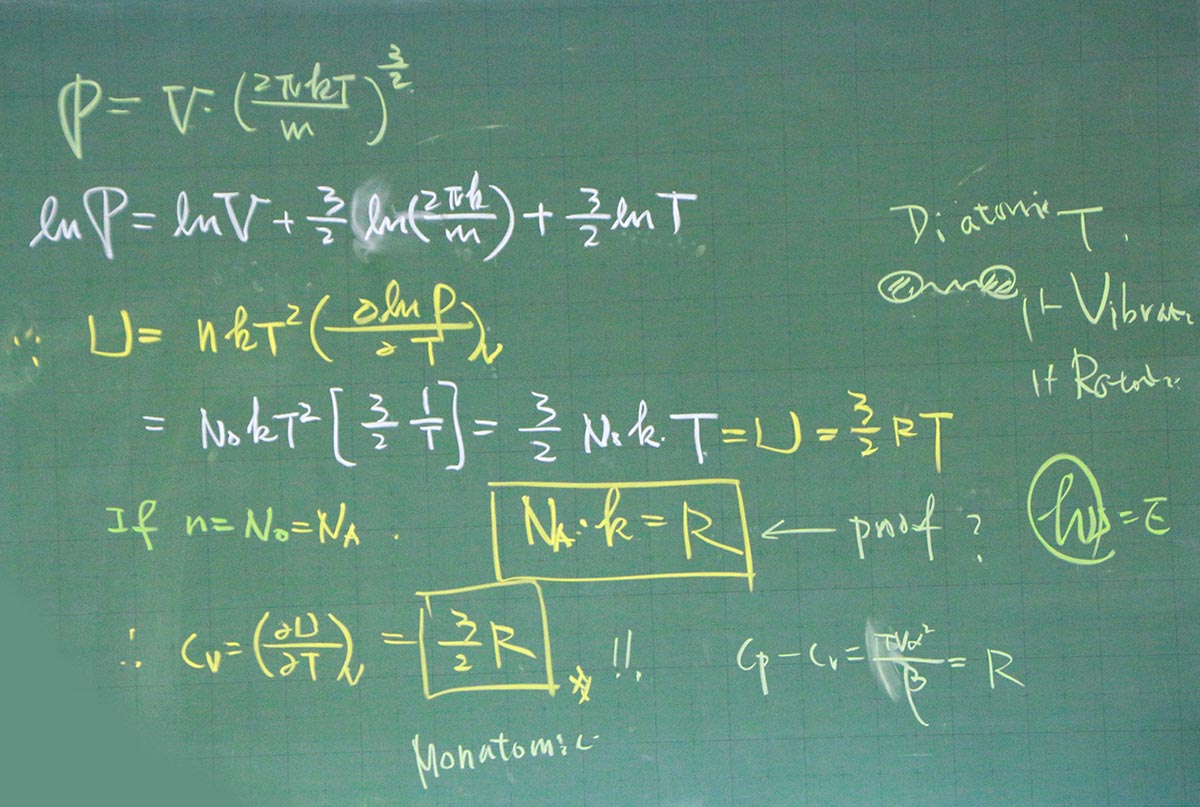 P = V · (2πkT / m)^(3/2)
ln P = ln V + 3/2 ln(2πk / m) + 3/2 ln T
∴ U = nkT² (∂ ln P / ∂T)v
= N₀kT² [3/2 1/T] = 3/2 N₀k · T = U = 3/2 RT
If n = N₀ = NA .
NA · k = R ← proof ?
∴ Cv = (∂U / ∂T)v = 3/2 R !!
Monatomic
Cp − Cv = TVα² / β = R
Diatomic T.
Vibrat
= E